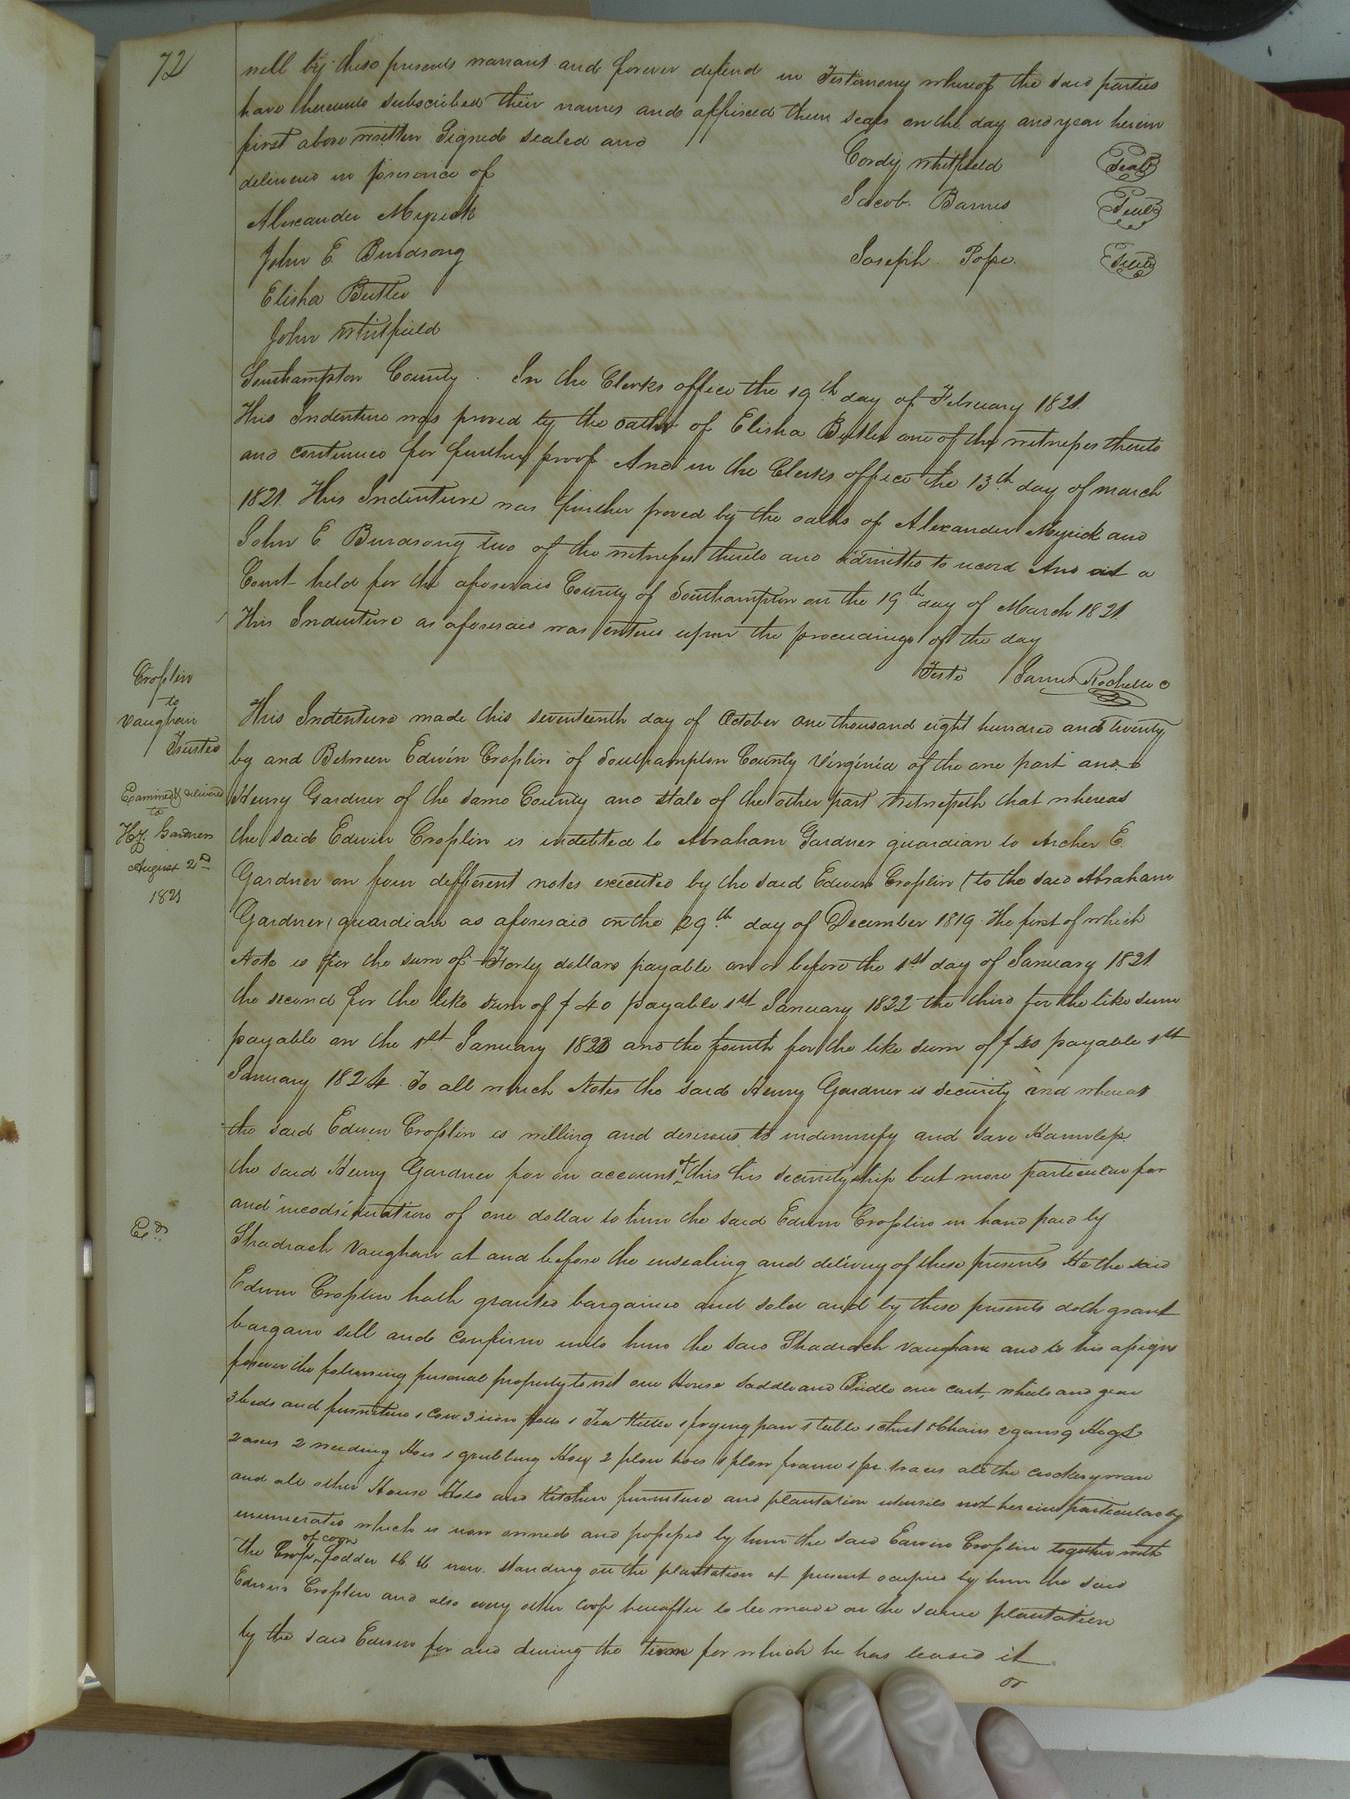 72
will by these presents warrant and forever defend in Testimony whereof the said parties
have hereunto subscribed their names and affixed their seals on the day and year herein
first above written Signed sealed and
delivered in presence of
Cordy Whitfield Seal
Alexander Myrick
Jacob Barnes Seal
John E Burdsong
Joseph Pope. Seal
Elisha Butler
John Whitfield
Southampton County. In the Clerks office the 19th day of February 1821
This Indenture was proved by the oath of Elisha Butler one of the witnesses thereto
and continued for further proof. And in the Clerks office the 13th day of march
1821. This Indenture was further proved by the oaths of Alexander Myrick and
John E Burdsong two of the witnesses thereto and admitted to record And at a
Court held for the aforesaid County of Southampton on the 19th day of March 1821
This Indenture as aforesaid was entered upon the proceedings of the day
Teste James Rochelle C
Crosslin
to
Vaughan
Trustee
Examined & delivered
to
Hy Gardner
August 2D
1821
This Indenture made this seventeenth day of October one thousand eight hundred and twenty
by and Between Edwin Crosslin of Southampton County Virginia of the one part and
Henry Gardner of the same County and state of the other part Witnesseth that whereas
the said Edwin Crosslin is indebted to Abraham Gardner guardian to Archer E.
Gardner on four different notes executed by the said Edwin Crosslin (to the said Abraham
Gardner) guardian as aforesaid on the 29th day of December 1819. The first of which
Note is for the sum of Forty dollars payable on or before the 1st day of January 1821
the second for the like sum of $40 payable 1st January 1822 the third for the like sum
payable on the 1st January 1823 and the fourth for the like sum of $40 payable 1st
January 1824. To all which Notes the said Henry Gardner is security and whereas
the said Edwin Crosslin is willing and desirous to indemnify and save Harmless
the said Henry Gardner for on account of this his securityship but more particular for
and incodsideration of one dollar to him the said Edwin Crosslin in hand paid by
Shadrach Vaughan at and before the ensealing and delivery of these presents He the said
Exd
Edwin Crosslin hath granted bargained and sold and by these presents doth grant
bargain sell and confirm unto him the said Shadrach Vaughan and to his assigns
forever the following personal property to wit one Horse Saddle and Bridle one cart, wheels and gear
3 beds and furniture 1 Cow 3 iron pots 1 Tea Kettle 1 frying pan 1 table 1 chest 6 Chairs 2 guns 9 Hogs
2 axes 2 weeding Hoes 1 grubbing Hoe 2 plow hoes 1 plow frame 1 pr. traces all the crockeryware
and all other House Hold and Kitchen furniture and plantation utensils not herein particularly
enumerated which is now owned and possessed by him the said Edwin Crosslin together with
the Crop of corn, fodder &c &c now standing on the plantation at present occupied by him the said
Edwin Crosslin and also every other crop hereafter to be made on the same plantation
by the said Edwin for and during the term for which he has leased it
or